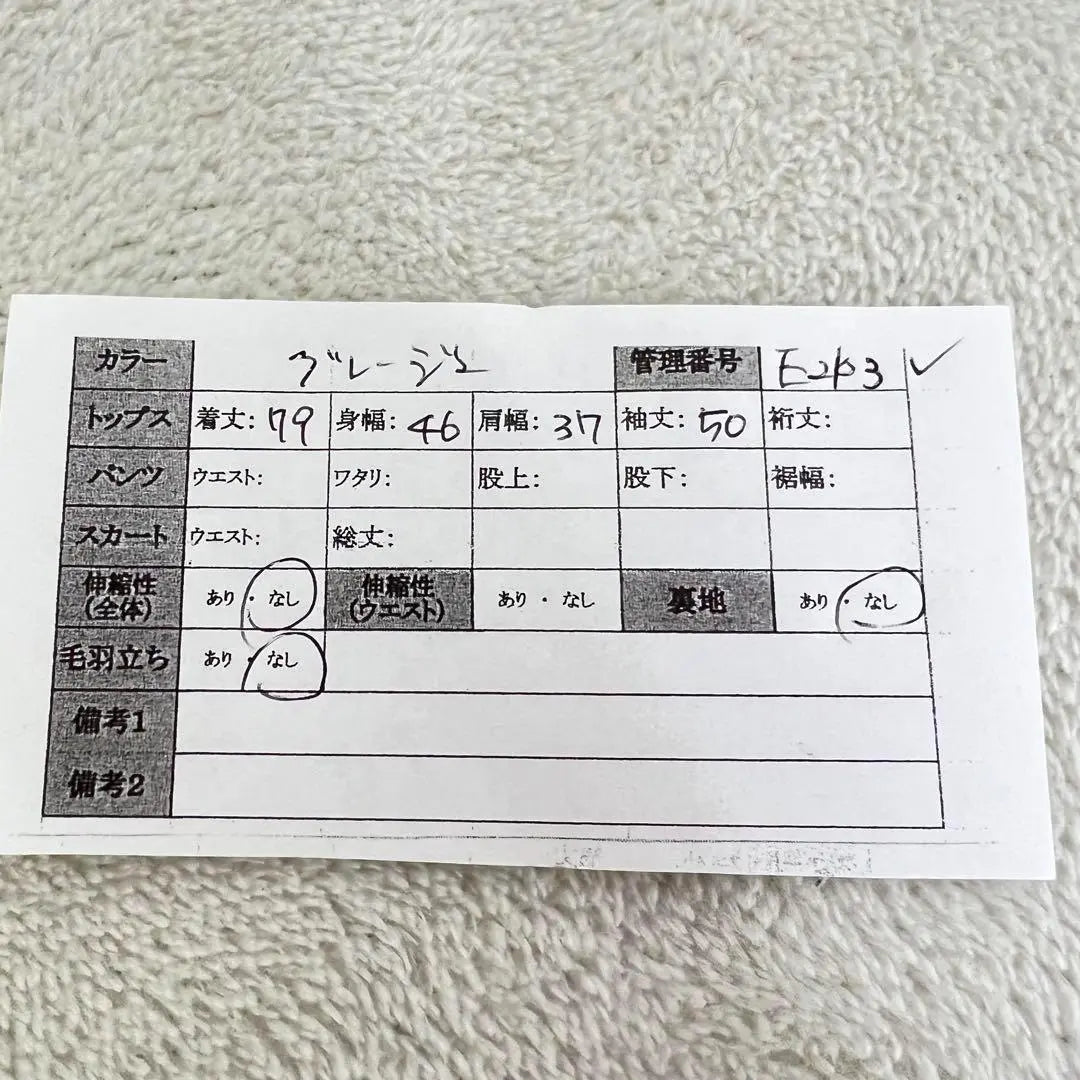 カラー グレージュ 管理番号 E2443 ✓
トップス 着丈: 79 身幅: 46 肩幅: 37 袖丈: 50 裄丈:
パンツ ウエスト: ワタリ: 股上: 股下: 裾幅:
スカート ウエスト: 総丈:
伸縮性(全体) あり・なし 伸縮性(ウエスト) あり・なし 裏地 あり・なし
毛羽立ち あり・なし
備考1
備考2